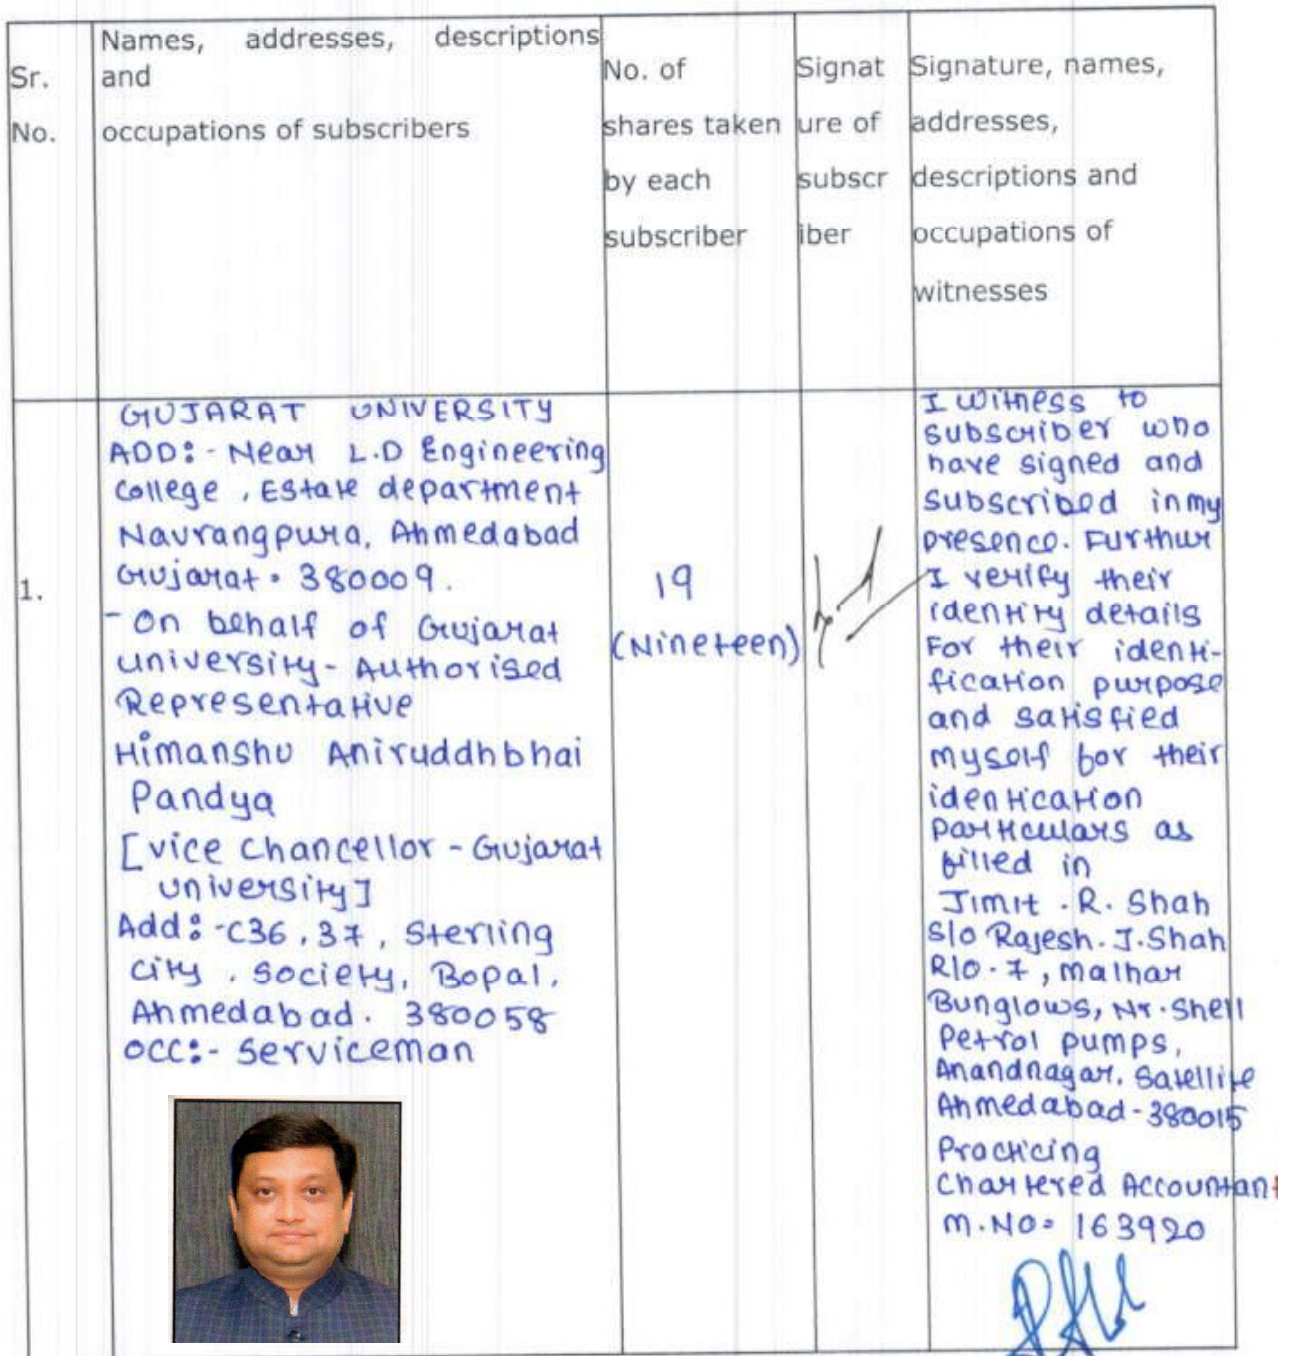 Sr.
No.
Names, addresses, descriptions
and
occupations of subscribers
No. of
shares taken
by each
subscriber
Signat
ure of
subscr
iber
Signature, names,
addresses,
descriptions and
occupations of
witnesses
1.
GUJARAT UNIVERSITY
ADD:- Near L.D Engineering
College , Estate department
Navrangpura, Ahmedabad
Gujarat. 380009.
- On behalf of Gujarat
university- Authorised
Representative
Himanshu Aniruddhbhai
Pandya
[vice chancellor - Gujarat
university]
Add:-C36,37, Sterling
city . society, Bopal,
Ahmedabad. 380058
occ:- serviceman
19
(Nineteen)
I witness to
subscriber who
have signed and
subscribed in my
presence. Furthur
I verify their
identity details
For their identi-
fication purpose
and satisfied
myself for their
identication
particulars as
filled in
Jimit .R. Shah
S/o Rajesh.J.Shah
R/o.7, malhar
Bunglows, Nr.shell
Petrol pumps,
Anandnagar, Satellite
Ahmedabad-380015
Practicing
Chartered Accountant
M.No= 163920